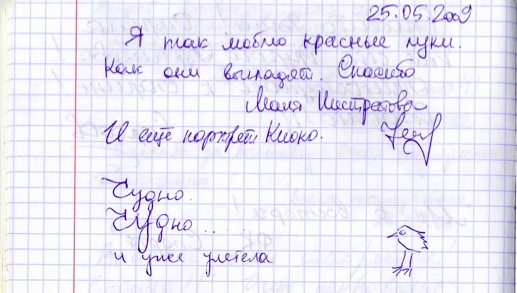 25.05.2009
Я так люблю красные луки.
Как они выглядят. Спасибо
Маля
И еще портрет Киоко.
Чудно.
Чудно...
и уже улетела